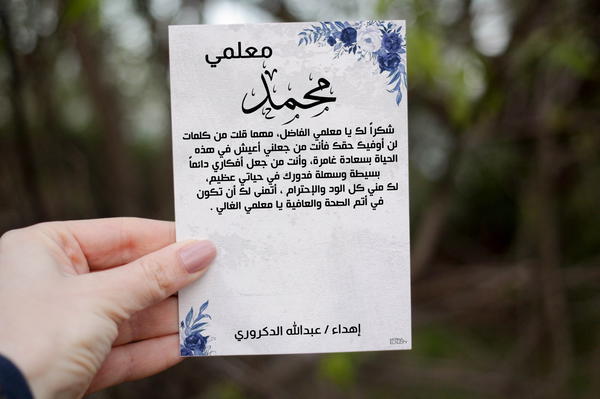 معلمي
محمد
شكراً لك يا معلمي الفاضل، مهما قلت من كلمات
لن أوفيك حقك فأنت من جعلني أعيش في هذه
الحياة بسعادة غامرة، وأنت من جعل أفكاري دائماً
بسيطة وسهلة فدورك في حياتي عظيم،
لك مني كل الود والإحترام ، أتمنى لك أن تكون
في أتم الصحة والعافية يا معلمي الغالي .
إهداء / عبدالله الدكروري